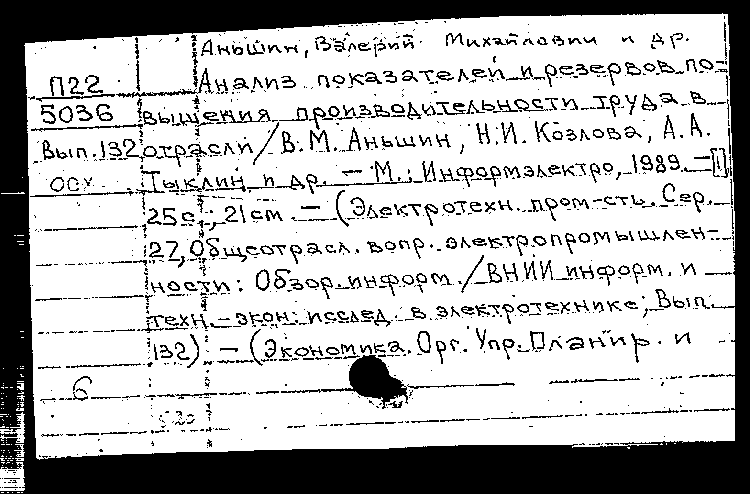 Аньшин, Валерий Михайлович и др.
П22 Анализ показателей и резервов по=
5036 вышения производительности труда в
Вып.132 отрасли / В.М. Аньшин, Н.И. Козлова, А.А.
осх Тыклин и др. – М.: Информэлектро, 1989. – [1]
25с.; 21см. – (Электротехн. пром-сть. Сер.
27, Общеотрасл. вопр. электропромышлен-
ности: Обзор. информ. / ВНИИ информ. и
техн.-экон. исслед. в электротехнике; Вып.
132). – (Экономика. Орг. Упр. Планир. и
6